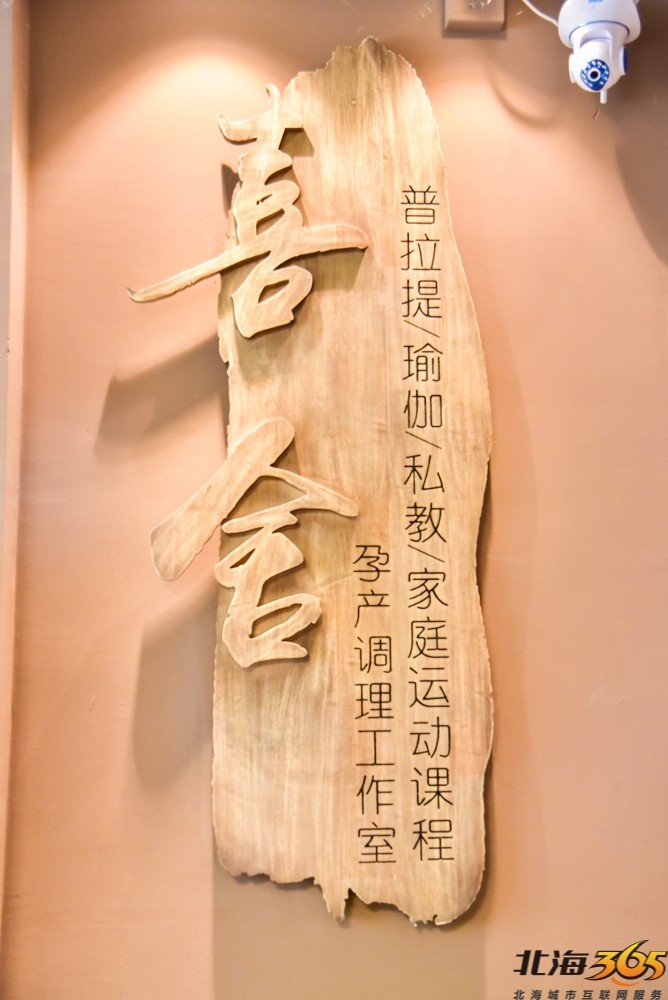 喜舍
普拉提/瑜伽/私教/家庭运动课程
孕产调理工作室
北海365
北海城市互联网服务